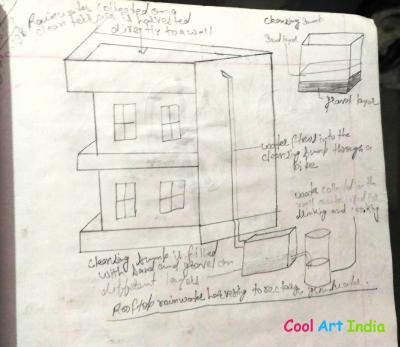 Rainwater collected on a
clean terrace is harvested
directly to a well
cleansing sump
Sand layer
gravel layer
water flows into the
cleansing sump through a
pipe
water collected in the
well
drinking and cooking
cleansing sump is filled
with sand and gravel on
different layers
Rooftop rainwater harvesting to recharge groundwater.
Cool Art India